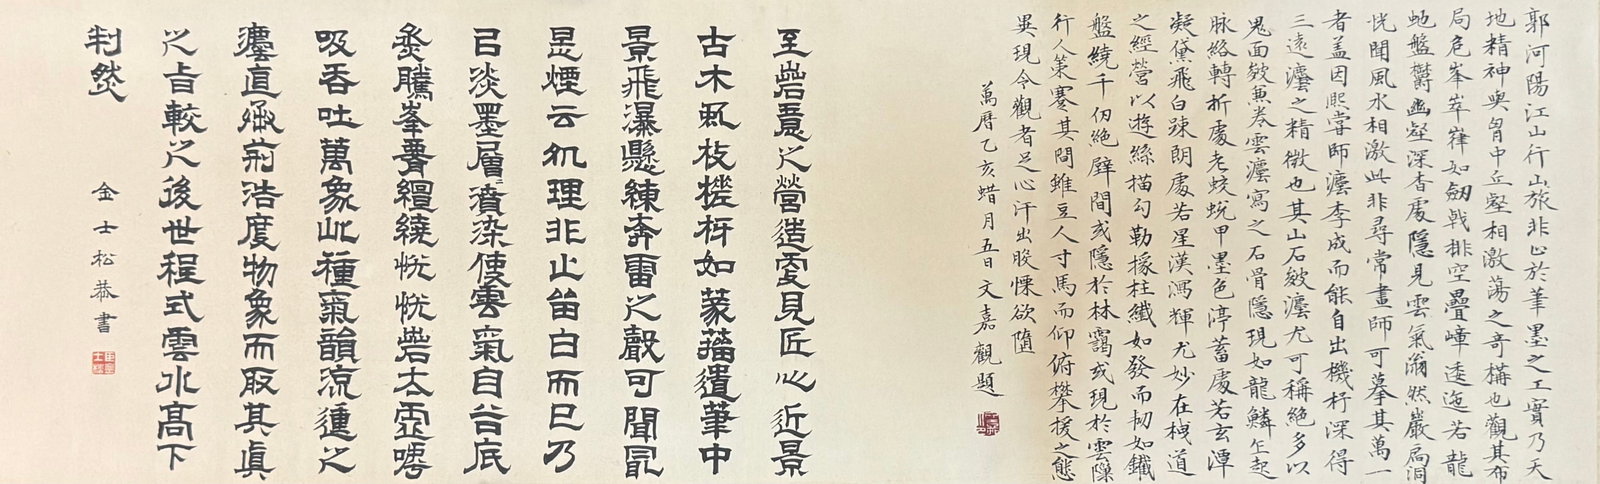 郭河陽江山行旅非止於筆墨之工實乃天
地精神與胷中丘壑相激蕩之奇構也觀其布
局危峯崒嵂如劔戟排空疊嶂逶迤若龍
虵盤欝幽壑深杳處隱見雲氣滃然巖局洞
恍聞風水相激此非尋常畫師可摹其萬一
者蓋因熙甞師灋李成而能自出機杼深得
三遠灋之精微也其山石皴灋尤可稱絕多以
鬼面皴兼卷雲灋寫之石骨隱現如龍鱗乍起
脉絡轉折處老蛟蛻甲墨色渟蓄處若玄潭
凝黛飛白踈朗處若星漢瀉輝尤妙在棧道
之經營以遊絲描勾勒椽柱纖如發而韌如鐵
盤繞千仞絕壁間或隱於林靄或現於雲隙
行人策蹇其間雖豆人寸馬而仰俯攀援之態
異現令觀者足心汗出股慄欲隨
萬曆乙亥蜡月五日文嘉觀題
至若意之營造更見匠心近景
古木虬枝槎枒如篆籀遺筆中
景飛瀑懸練奔雷之聲可聞最
是煙云処理非止留白而已乃
㠯淡墨層漬染使雲氣自谷底
蒸騰峯脊纏繞恍恍若太虛噓
吸吞吐萬象此種氣韻流連之
灋直承荊浩度物象而取其真
之旨較之後世程式雲水高下
判然
金士松恭書